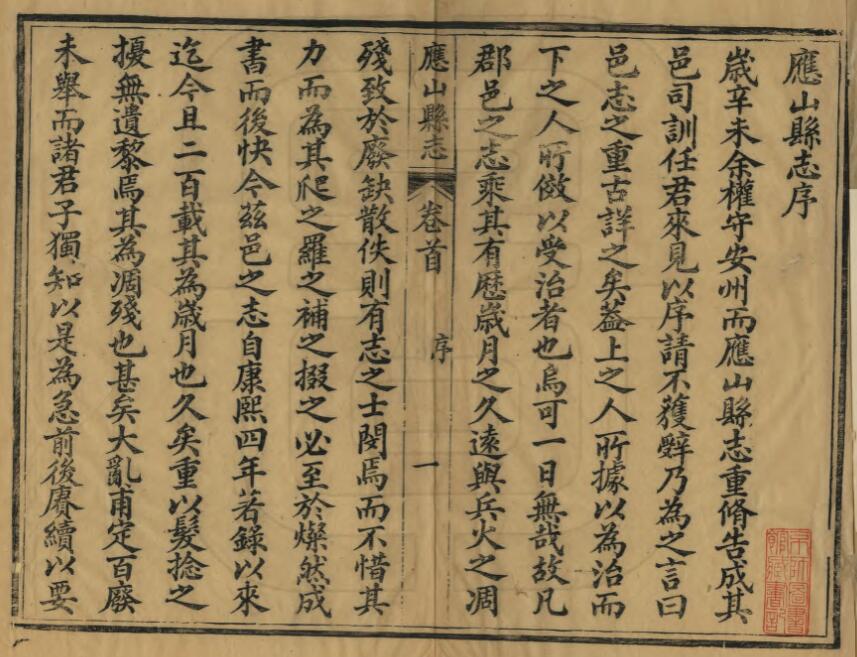 應山縣志序
歲辛未余權守安州而應山縣志重脩告成其
邑司訓任君來見以序請不獲辭乃為之言曰
邑志之重古詳之矣蓋上之人所據以為治而
下之人所倣以受治者也烏可一日無哉故凡
郡邑之志乘其有歷歲月之久遠與兵火之凋
應山縣志 卷首 序 一
殘致於廢缺散佚則有志之士閔焉而不惜其
力而為其爬之羅之補之掇之必至於燦然成
書而後快今茲邑之志自康熙四年著錄以來
迄今且二百載其為歲月也久矣重以髮捻之
擾無遺黎焉其為凋殘也甚矣大亂甫定百廢
未舉而諸君子獨知以是為急前後賡續以要